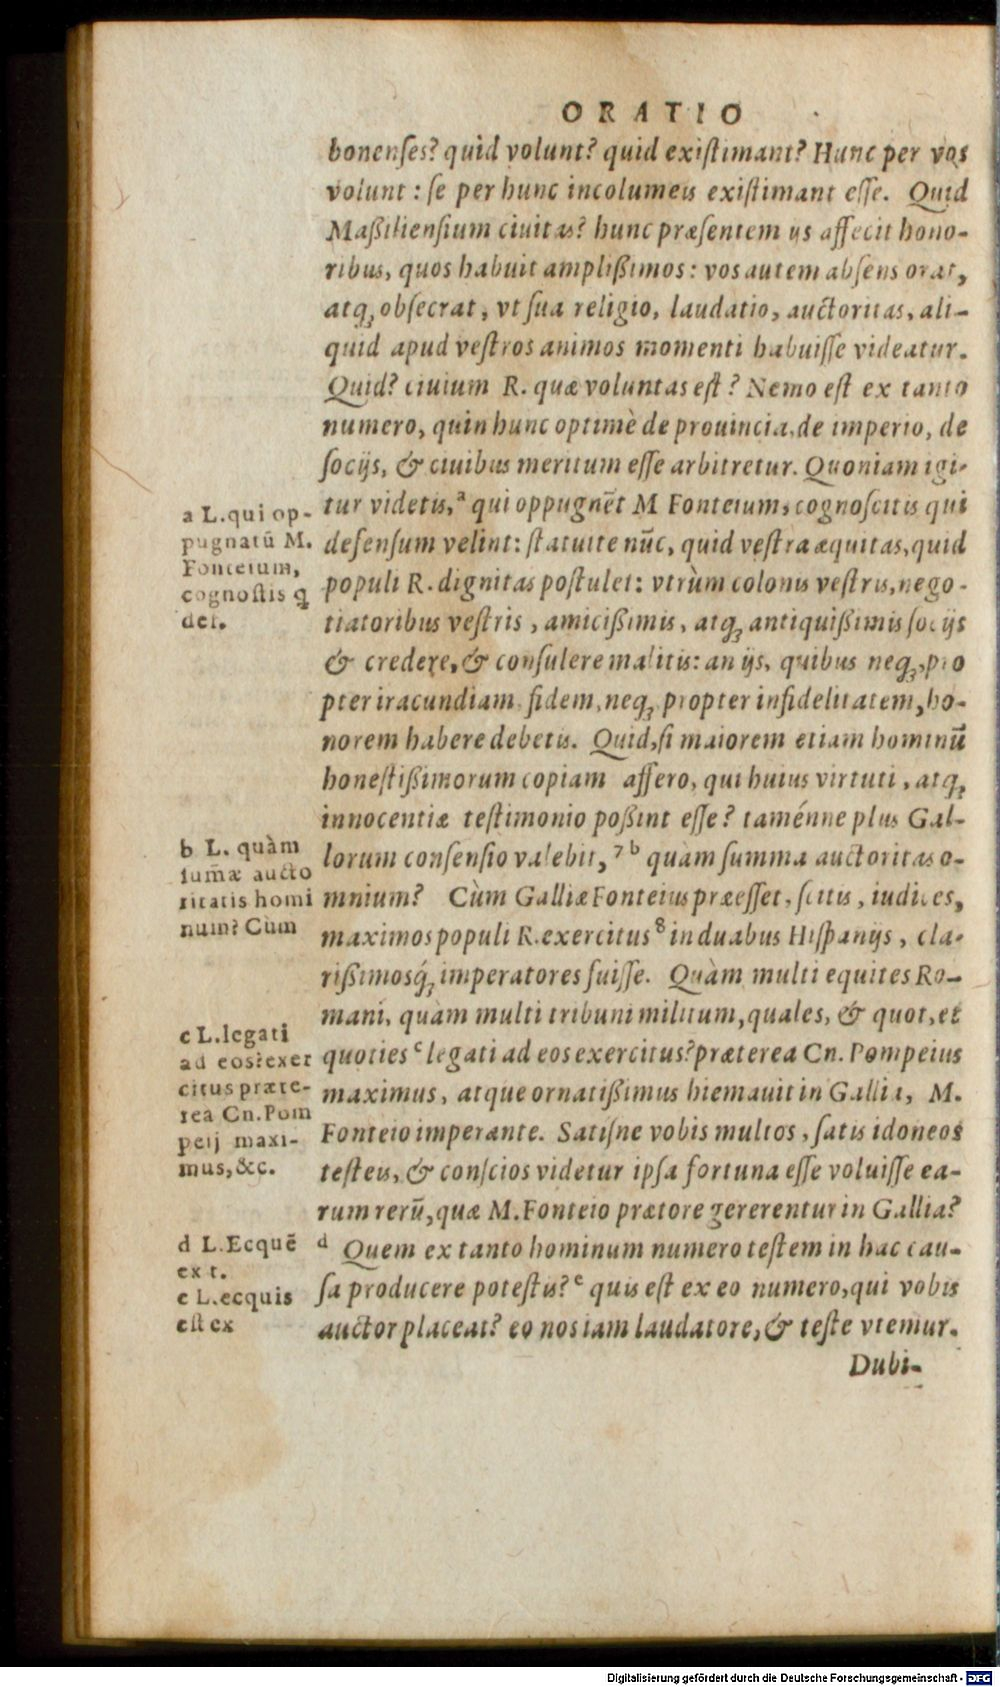 ORATIO
bonenſes? quid volunt? quid exiſtimant? Hunc per vos
volunt: ſe per hunc incolumeis exiſtimant eſſe. Quid
Maßilienſium ciuitas? hunc præſentem ijs affecit hono-
ribus, quos habuit amplißimos: vos autem abſens orat,
atq; obſecrat, vt ſua religio, laudatio, auctoritas, ali-
quid apud veſtros animos momenti habuiſſe videatur.
Quid? ciuium R. quæ voluntas eſt? Nemo eſt ex tanto
numero, quin hunc optimè de prouincia, de imperio, de
ſocijs, & ciuibus meritum eſſe arbitretur. Quoniam igi-
tur videtis, a qui oppugnẽt M Fonteium, cognoſcitis qui
defenſum velint: ſtatuite nũc, quid veſtra æquitas, quid
populi R. dignitas poſtulet: vtrùm colonis veſtris, nego-
tiatoribus veſtris, amicißimis, atq; antiquißimis ſocijs
& credere, & conſulere malitis: an ijs, quibus neq;, pro
pter iracundiam, fidem, neq; propter infidelitatem, ho-
norem habere debetis. Quid, ſi maiorem etiam hominũ
honeſtißimorum copiam affero, qui huius virtuti, atq;
innocentiæ teſtimonio poßint eſſe? taménne plus Gal-
lorum conſenſio valebit, 7 b quàm ſumma auctoritas o-
mnium? Cùm Galliæ Fonteius præeſſet, ſcitis, iudices,
maximos populi R. exercitus 8 in duabus Hiſpanijs, cla-
rißimosq́; imperatores fuiſſe. Quàm multi equites Ro-
mani, quàm multi tribuni militum, quales, & quot, et
quoties c legati ad eos exercitus? præterea Cn. Pompeius
maximus, atque ornatißimus hiemauit in Gallia, M.
Fonteio imperante. Satiſne vobis multos, ſatis idoneos
teſteis, & conſcios videtur ipſa fortuna eſſe voluiſſe ea-
rum rerũ, quæ M. Fonteio prætore gererentur in Gallia?
d Quem ex tanto hominum numero teſtem in hac cau-
ſa producere poteſtis? e quis eſt ex eo numero, qui vobis
auctor placeat? eo nos iam laudatore, & teſte vtemur.
Dubi-
a L. qui op-
pugnatũ M.
Fonteium,
cognoſtis q
def.
b L. quàm
ſum̃æ aucto
ritatis homi
num? Cùm
c L. legati
ad eos: exer
citus præte-
rea Cn. Pom
peij maxi-
mus, &c.
d L. Ecquẽ
ex t.
e L. ecquis
eſt ex
Digitalisierung gefördert durch die Deutsche Forschungsgemeinschaft - DFG